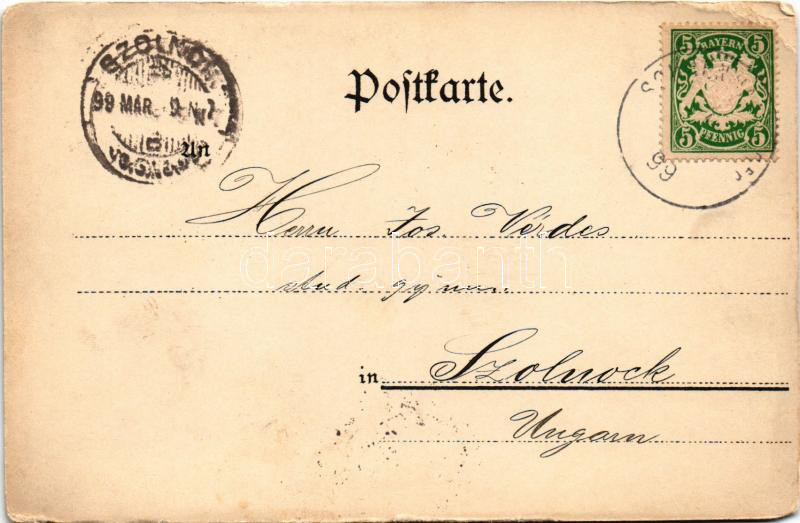 SZOLNOK
99 MAR. 9. N. 7
Postkarte.
5 BAYERN 5
5 PFENNIG 5
99
An
Herrn Jos. Verdes
stud. gymn.
darabanth
in Szolnock
Ungarn